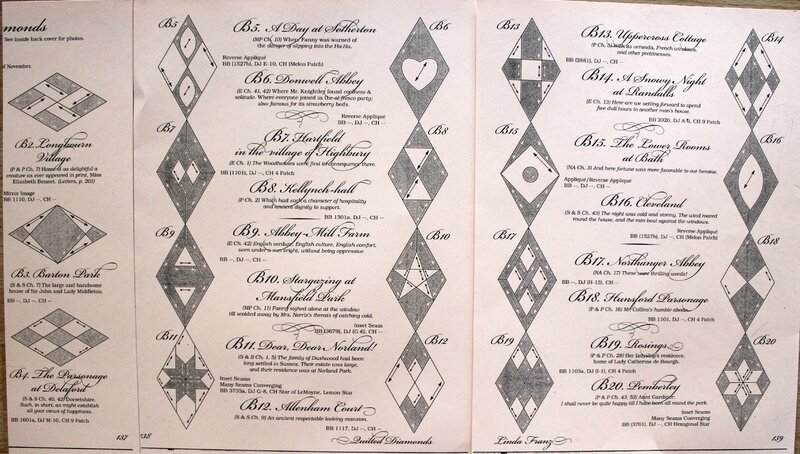 monds
See inside back cover for photos.
of November.
B2. Longbourn
Village
(P & P Ch. 7) Home of as delightful a
creature as ever appeared in print, Miss
Elizabeth Bennet. (Letters, p. 201)
Mirror Image
BB 1110, DJ --, CH --
B3. Barton Park
(S & S Ch. 7) The large and handsome
house of Sir John and Lady Middleton.
BB --, DJ --, CH --
B4. The Parsonage
at Delaford
(S & S Ch. 40, 42) Dorsetshire.
Such, in short, as might establish
all your views of happiness.
BB 1601a, DJ M-10, CH 9 Patch
137
B5
B5. A Day at Sotherton
(MP Ch. 10) Where Fanny was warned of
the danger of slipping into the Ha-Ha.
Reverse Appliqué
BB (1527b), DJ E-10, CH (Melon Patch)
B6
B6. Donwell Abbey
(E Ch. 41, 42) Where Mr. Knightley found coolness &
solitude. Where everyone joined in the al fresco party;
also famous for its strawberry beds.
Reverse Appliqué
BB --, DJ --, CH --
B7
B7. Hartfield
in the village of Highbury
(E Ch. 1) The Woodhouses were first in consequence there.
BB (1101), DJ --, CH 4 Patch
B8
B8. Kellynch-hall
(P Ch. 2) Which had such a character of hospitality
and ancient dignity to support.
BB 1301a, DJ --, CH --
B9
B9. Abbey-Mill Farm
(E Ch. 42) English verdure, English culture, English comfort,
seen under a sun bright, without being oppressive.
BB --, DJ --, CH --
B10
B10. Stargazing at
Mansfield Park
(MP Ch. 11) Fanny sighed alone at the window
till scolded away by Mrs. Norris's threats of catching cold.
Inset Seam
BB (3679), DJ (G-6), CH --
B11
B11. Dear, Dear, Norland!
(S & S Ch. 1, 5) The family of Dashwood had been
long settled in Sussex. Their estate was large,
and their residence was at Norland Park.
Inset Seams
Many Seams Converging
BB 3735a, DJ G-8, CH Star of LeMoyne, Lemon Star
B12
B12. Allenham Court
(S & S Ch. 9) An ancient respectable looking mansion.
BB 1117, DJ --, CH --
138
Quilted Diamonds
B13
B13. Uppercross Cottage
(P Ch. 5) With its veranda, French windows,
and other prettinesses.
BB (2881), DJ --, CH --
B14
B14. A Snowy Night
at Randalls
(E Ch. 13) Here are we setting forward to spend
five dull hours in another man's house.
BB 2020, DJ A-5, CH 9 Patch
B15
B15. The Lower Rooms
at Bath
(NA Ch. 3) And here fortune was more favourable to our heroine.
Appliqué/Reverse Appliqué
BB --, DJ --, CH --
B16
B16. Cleveland
(S & S Ch. 43) The night was cold and stormy. The wind roared
round the house, and the rain beat against the windows.
Reverse Appliqué
BB (1527b), DJ --, CH (Melon Patch)
B17
B17. Northanger Abbey
(NA Ch. 17) These were thrilling words!
BB --, DJ (H-13), CH --
B18
B18. Hunsford Parsonage
(P & P Ch. 16) Mr. Collins's humble abode.
BB 1101, DJ --, CH 4 Patch
B19
B19. Rosings
(P & P Ch. 28) Her ladyship's residence,
home of Lady Catherine de Bourgh.
BB 1103a, DJ (I-1), CH 4 Patch
B20
B20. Pemberley
(P & P Ch. 43, 52) Aunt Gardiner:
I shall never be quite happy till I have been all round the park.
Inset Seams
Many Seams Converging
BB (3701), DJ --, CH Hexagonal Star
Linda Franz
139